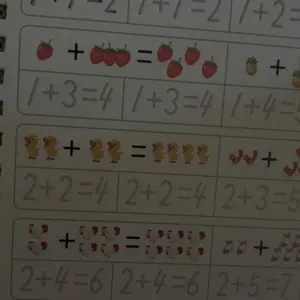 1+1=2 1+1=2 1+2=
+ = +
1+3=4 1+3=4 1+4=
+ = +
2+2=4 2+2=4 2+3=5
+ = +
2+4=6 2+4=6 2+5=7